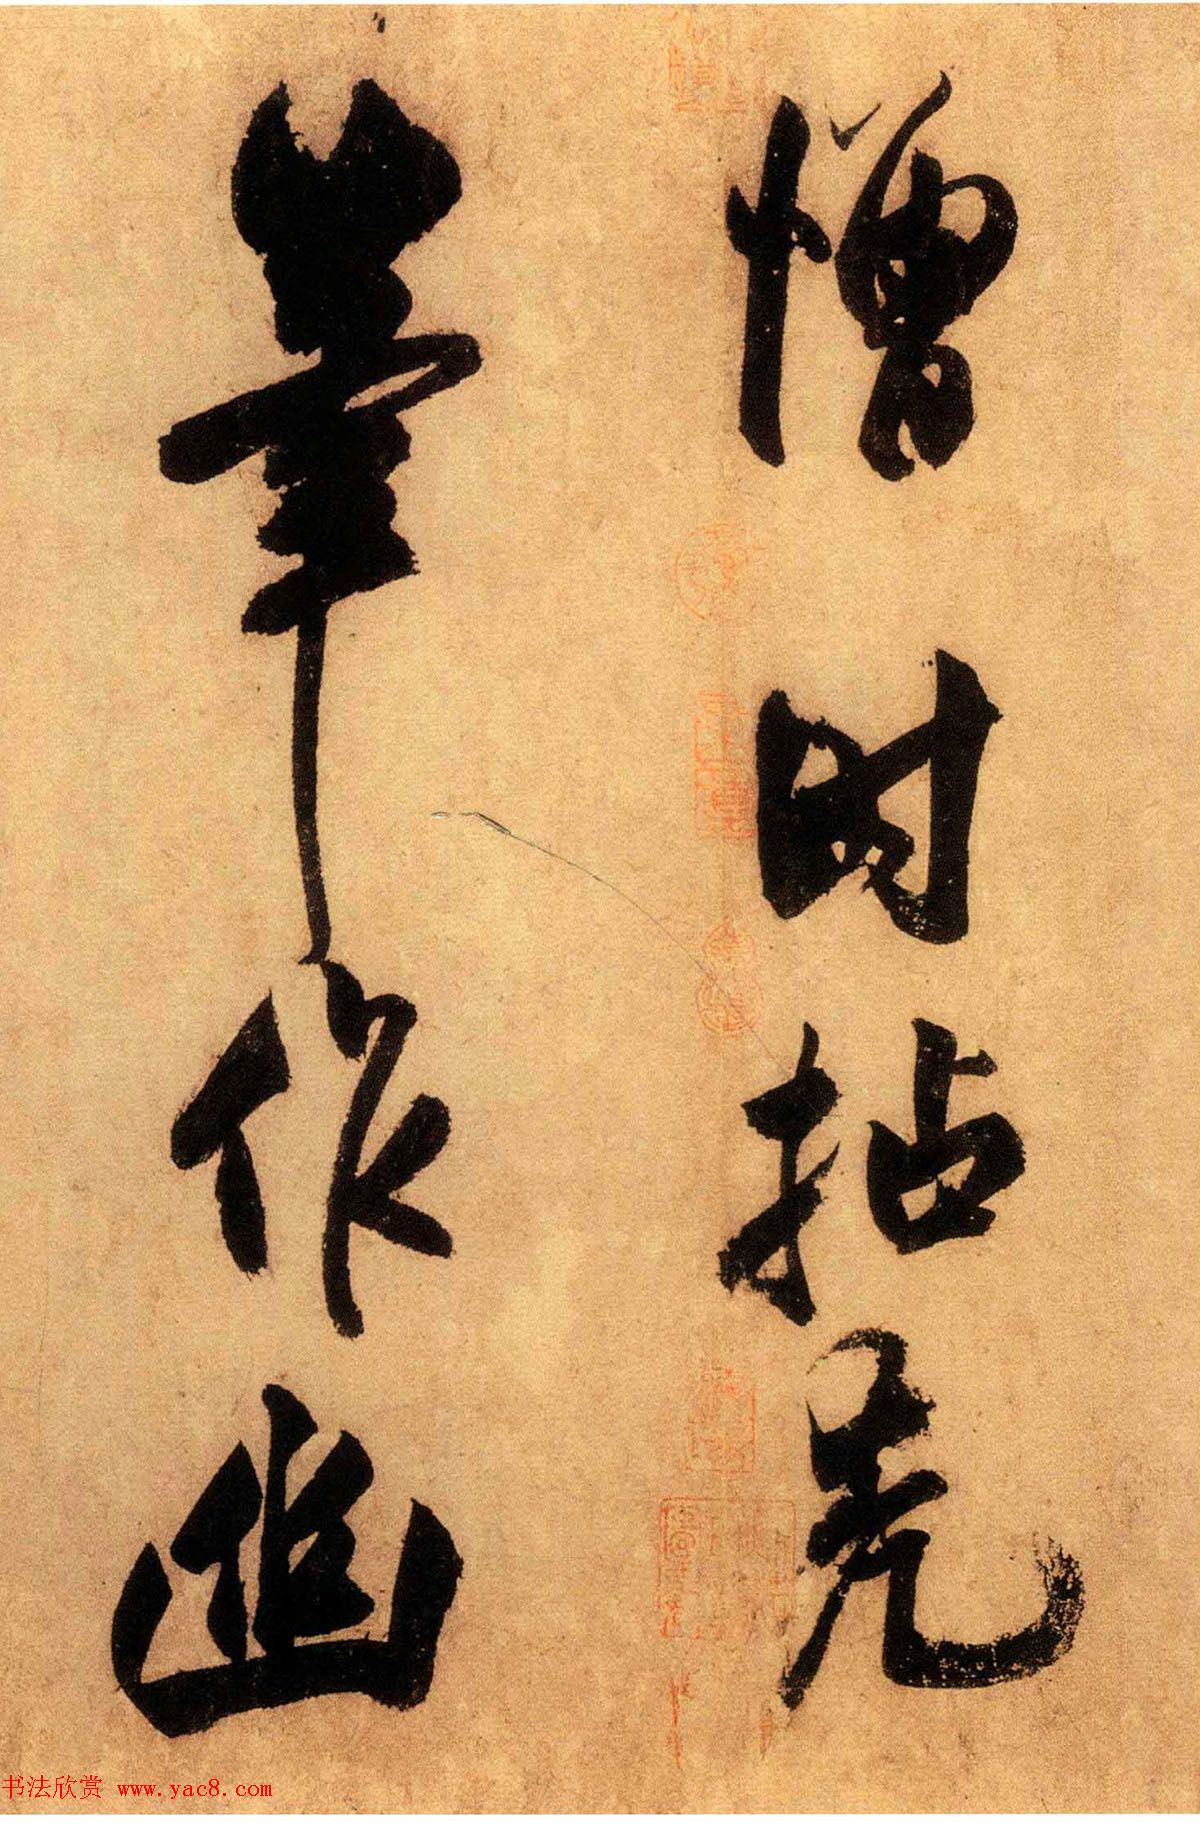 憎时拈秃
筆作幽
书法欣赏 www.yac8.com